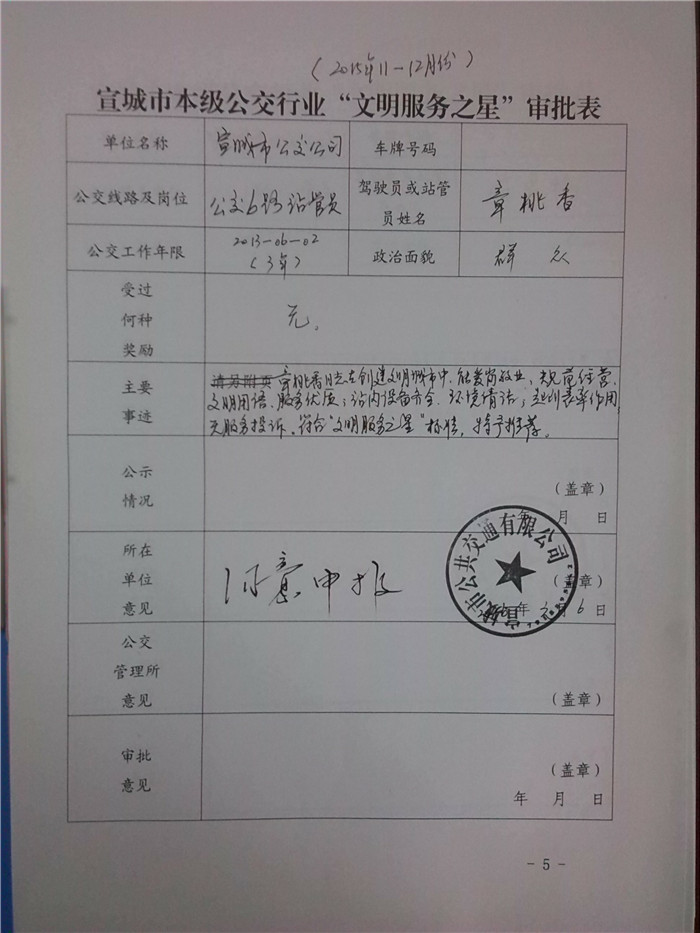 （2015年11-12月份）
宣城市本级公交行业“文明服务之星”审批表
单位名称 宣城市公交公司 车牌号码
公交线路及岗位 公交6路站管员 驾驶员或站管
员姓名 章桃香
公交工作年限 2013-06-02
（3年） 政治面貌 群众
受过
何种
奖励
无。
主要
事迹
请另附页 章桃香同志在创建文明城市中,能爱岗敬业,规范经营,
文明用语,服务优质;站内设备齐全,环境清洁;起到表率作用,
无服务投诉,符合“文明服务之星”标准,特予推荐。
公示
情况
（盖章）
年 月 日
所在
单位
意见
同意申报
宣城市公共交通有限公司
（盖章）
年 月 6日
公交
管理所
意见
（盖章）
审批
意见
（盖章）
年 月 日
- 5 -